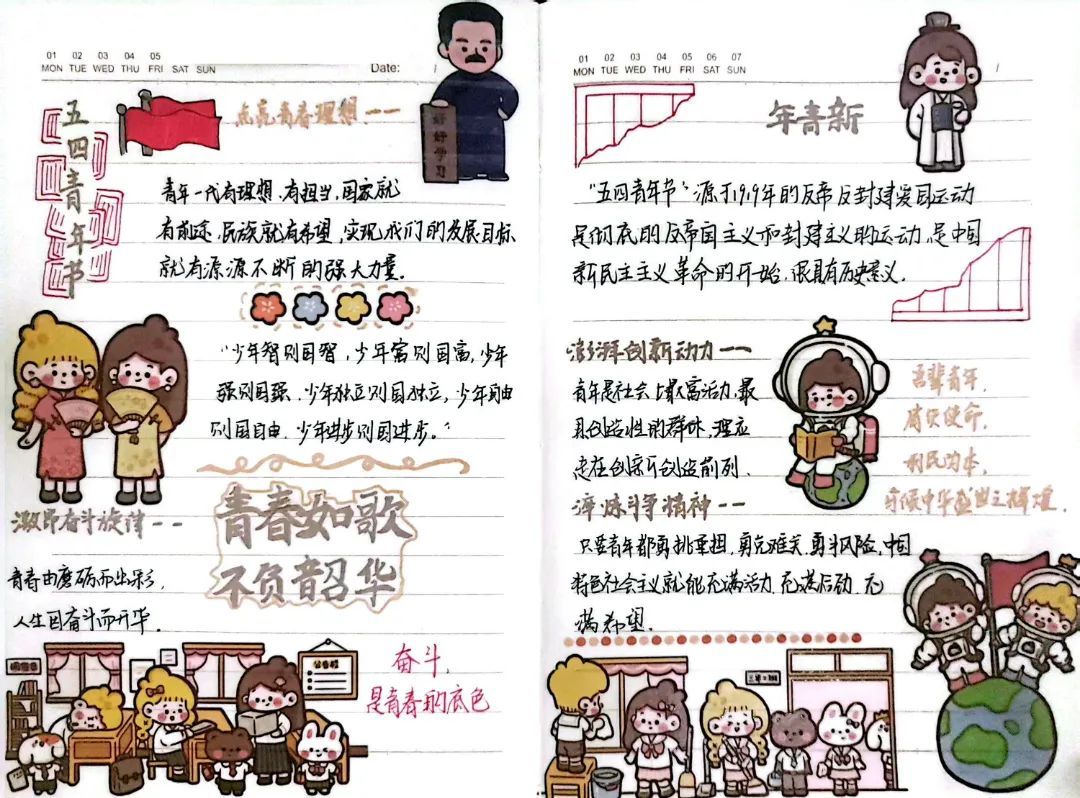 01 02 03 04 05
MON TUE WED THU FRI SAT SUN
Date: /
五四青年节
点亮青春理想——
好好学习
青年一代有理想、有担当,国家就
有前途,民族就有希望,实现我们的发展目标
就有源源不断的强大力量。
“少年智则国智,少年富则国富,少年
强则国强、少年独立则国独立,少年自由
则国自由,少年进步则国进步。”
青春如歌
不负韶华
激昂奋斗旋律——
青春由磨砺而出彩,
人生因奋斗而升华。
公告栏
奋斗,
是青春的底色
01 02 03 04 05 06 07
MON TUE WED THU FRI SAT SUN
/
年青新
“五四青年节”源于1919年的反帝反封建爱国运动
是彻底的反帝国主义和封建主义的运动,是中国
新民主主义革命的开始,很具有历史意义。
澎湃创新动力——
青年是社会上最富活力、最
具创造性的群体,理应
走在创新创造前列。
吾辈青年,
肩负使命,
利民为本,
守候中华盛世之辉煌。
淬炼斗争精神——
只要青年都勇挑重担、勇克难关、勇斗风险,中国
特色社会主义就能充满活力、充满后劲、充
满希望。